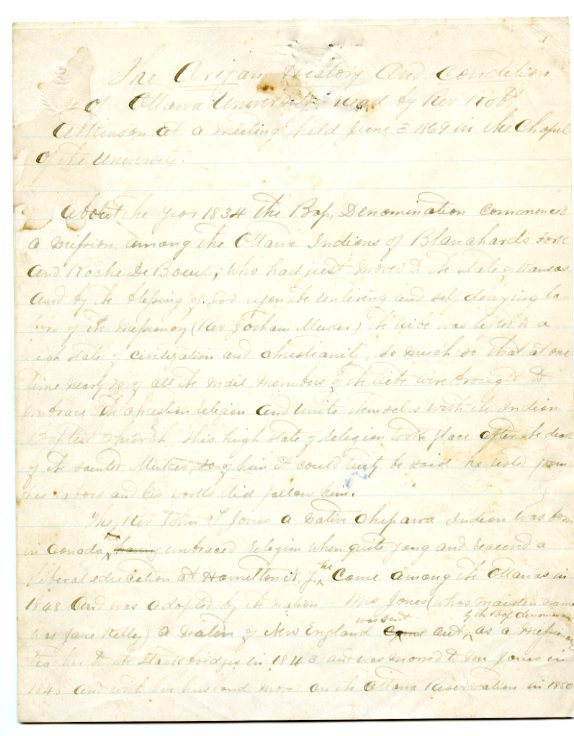 The Origan History and Condition
of Ottawa University read by Rev Robt
Atkinson at a meeting held June 3 1869 in the Chapel
of the University.
About the year 1834 the Bap. Denomination commenced
a mission among the Ottawa Indians of Blanchards Fork
and Roche De Boeuf, who had just moved to the state of Kansas
and by the blessing of God upon the untiring and self denying la
bors of the missionary (Rev Jotham Meeker) the tribe was lifted to a
high state of civilization and christianity, so much so that at one
time nearly if not all the members of the tribe were brought to
embrace the christian religion and unite themselves with the Indian
Baptist church, this high state of religion took place after the death
of the sainted Meeker, of him it could truly be said he rested from
his labors and his works did follow him.
The Rev John T Jones a native Chipawa Indian was born
in Canada embraced religion when quite yong and received a
liberal education at Hamelton N.Y. he came among the Ottawas in
1848 and was adopted by the nation Mrs Jones (whos maiden name
was Jane Kelley) a native of New England was sent and by the Bap denomination as a mission
to the Stockbridges in 1843 and was married to Mr Jones in
1845 and with her husband moved on the Ottawa reservation in 1850